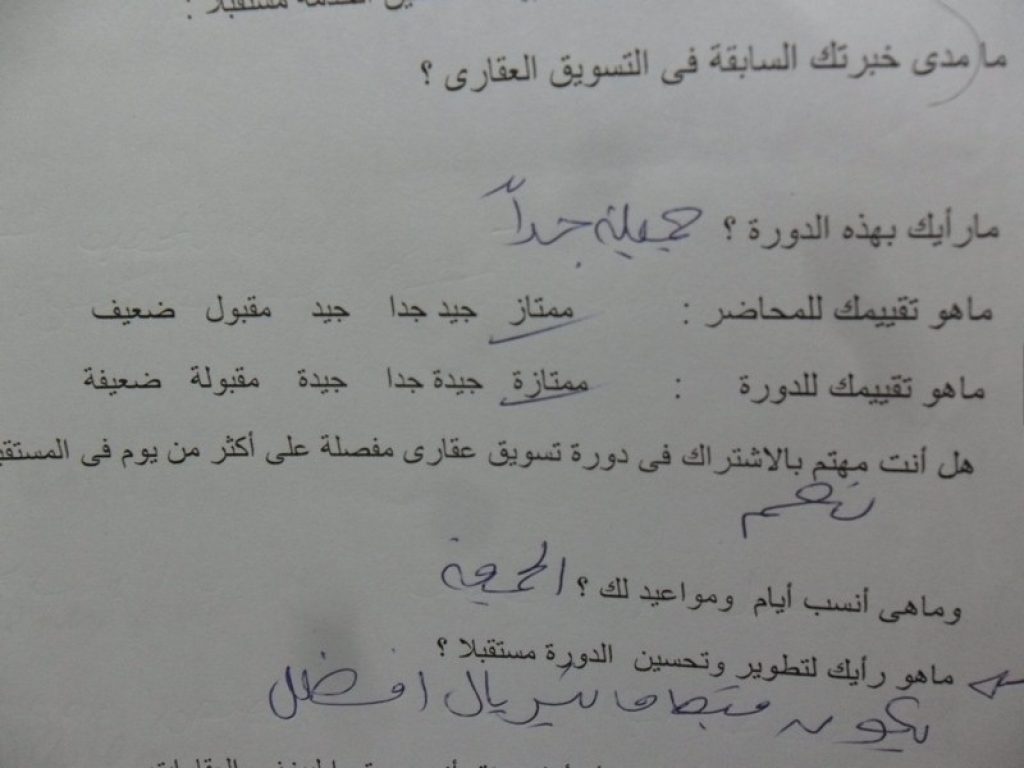 مستقبلا :
ما مدى خبرتك السابقة فى التسويق العقارى ؟
مارأيك بهذه الدورة ؟ جميلة جداً
ماهو تقييمك للمحاضر : ممتاز جيد جدا جيد مقبول ضعيف
ماهو تقييمك للدورة : ممتازة جيدة جدا جيدة مقبولة ضعيفة
هل أنت مهتم بالاشتراك فى دورة تسويق عقارى مفصلة على أكثر من يوم فى المستقب
نعم
وماهى أنسب أيام ومواعيد لك ؟ الجمعة
ماهو رأيك لتطوير وتحسين الدورة مستقبلا ؟
يكون افضل